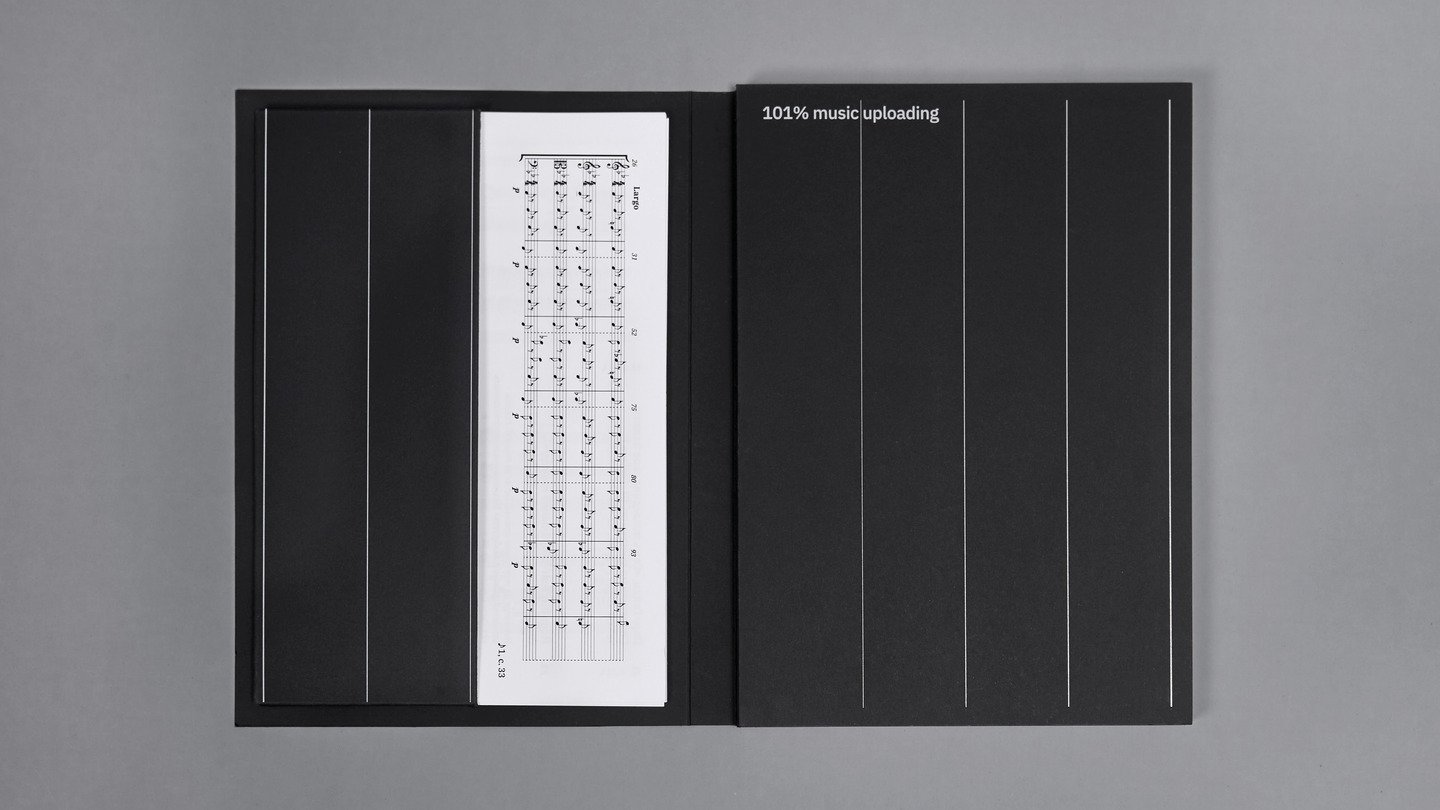 101% music uploading
26 Largo
31
52
75
80
93
p p p p p p
♪ 1, c. 33